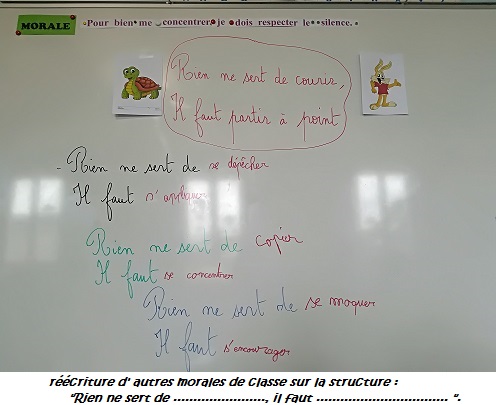 MORALE
Pour bien me concentrer, je dois respecter le silence.
Rien ne sert de courir,
Il faut partir à point
- Rien ne sert de se dépêcher
Il faut s'appliquer
Rien ne sert de copier
Il faut se concentrer
Rien ne sert de se moquer
Il faut s'encourager
réécriture d' autres morales de classe sur la structure :
"Rien ne sert de ......................., il faut ................................. ".